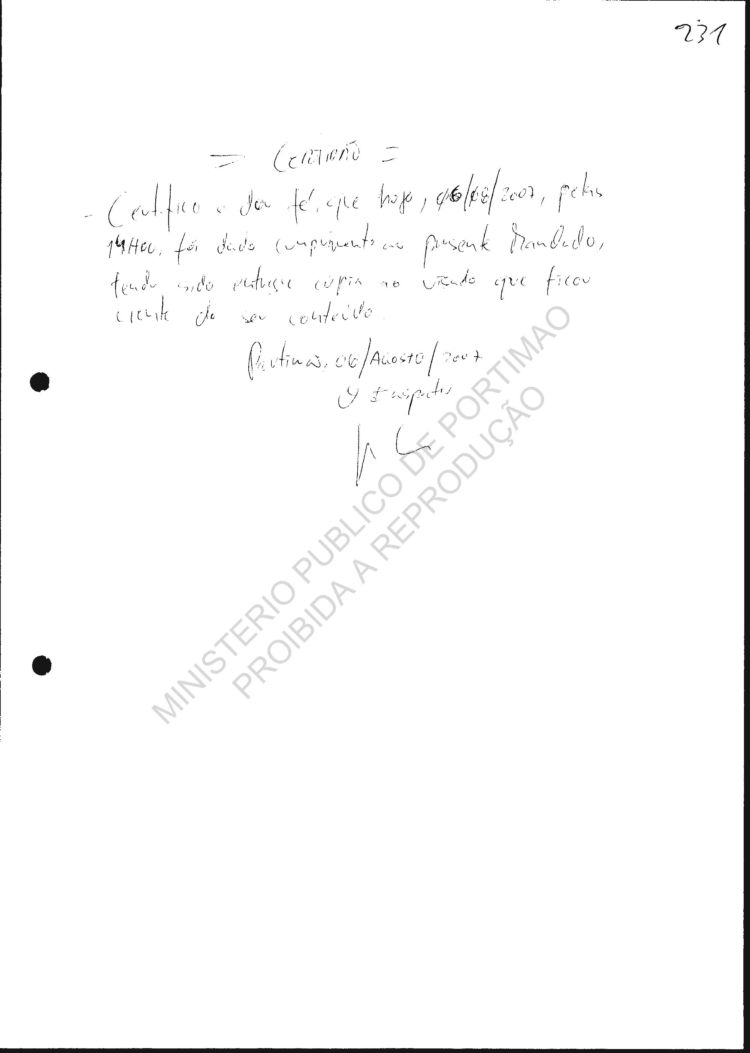 231
= CERTIDÃO =
- Certifico e dou fé, que hoje, 06/08/2007, pelas
14H00, foi dado cumprimento ao presente Mandado,
tendo sido entregue cópia ao visado que ficou
ciente do seu conteúdo.
Portimão, 06/AGOSTO/2007
O Inspector
MINISTERIO PUBLICO DE PORTIMAO
PROIBIDA A REPRODUÇÃO